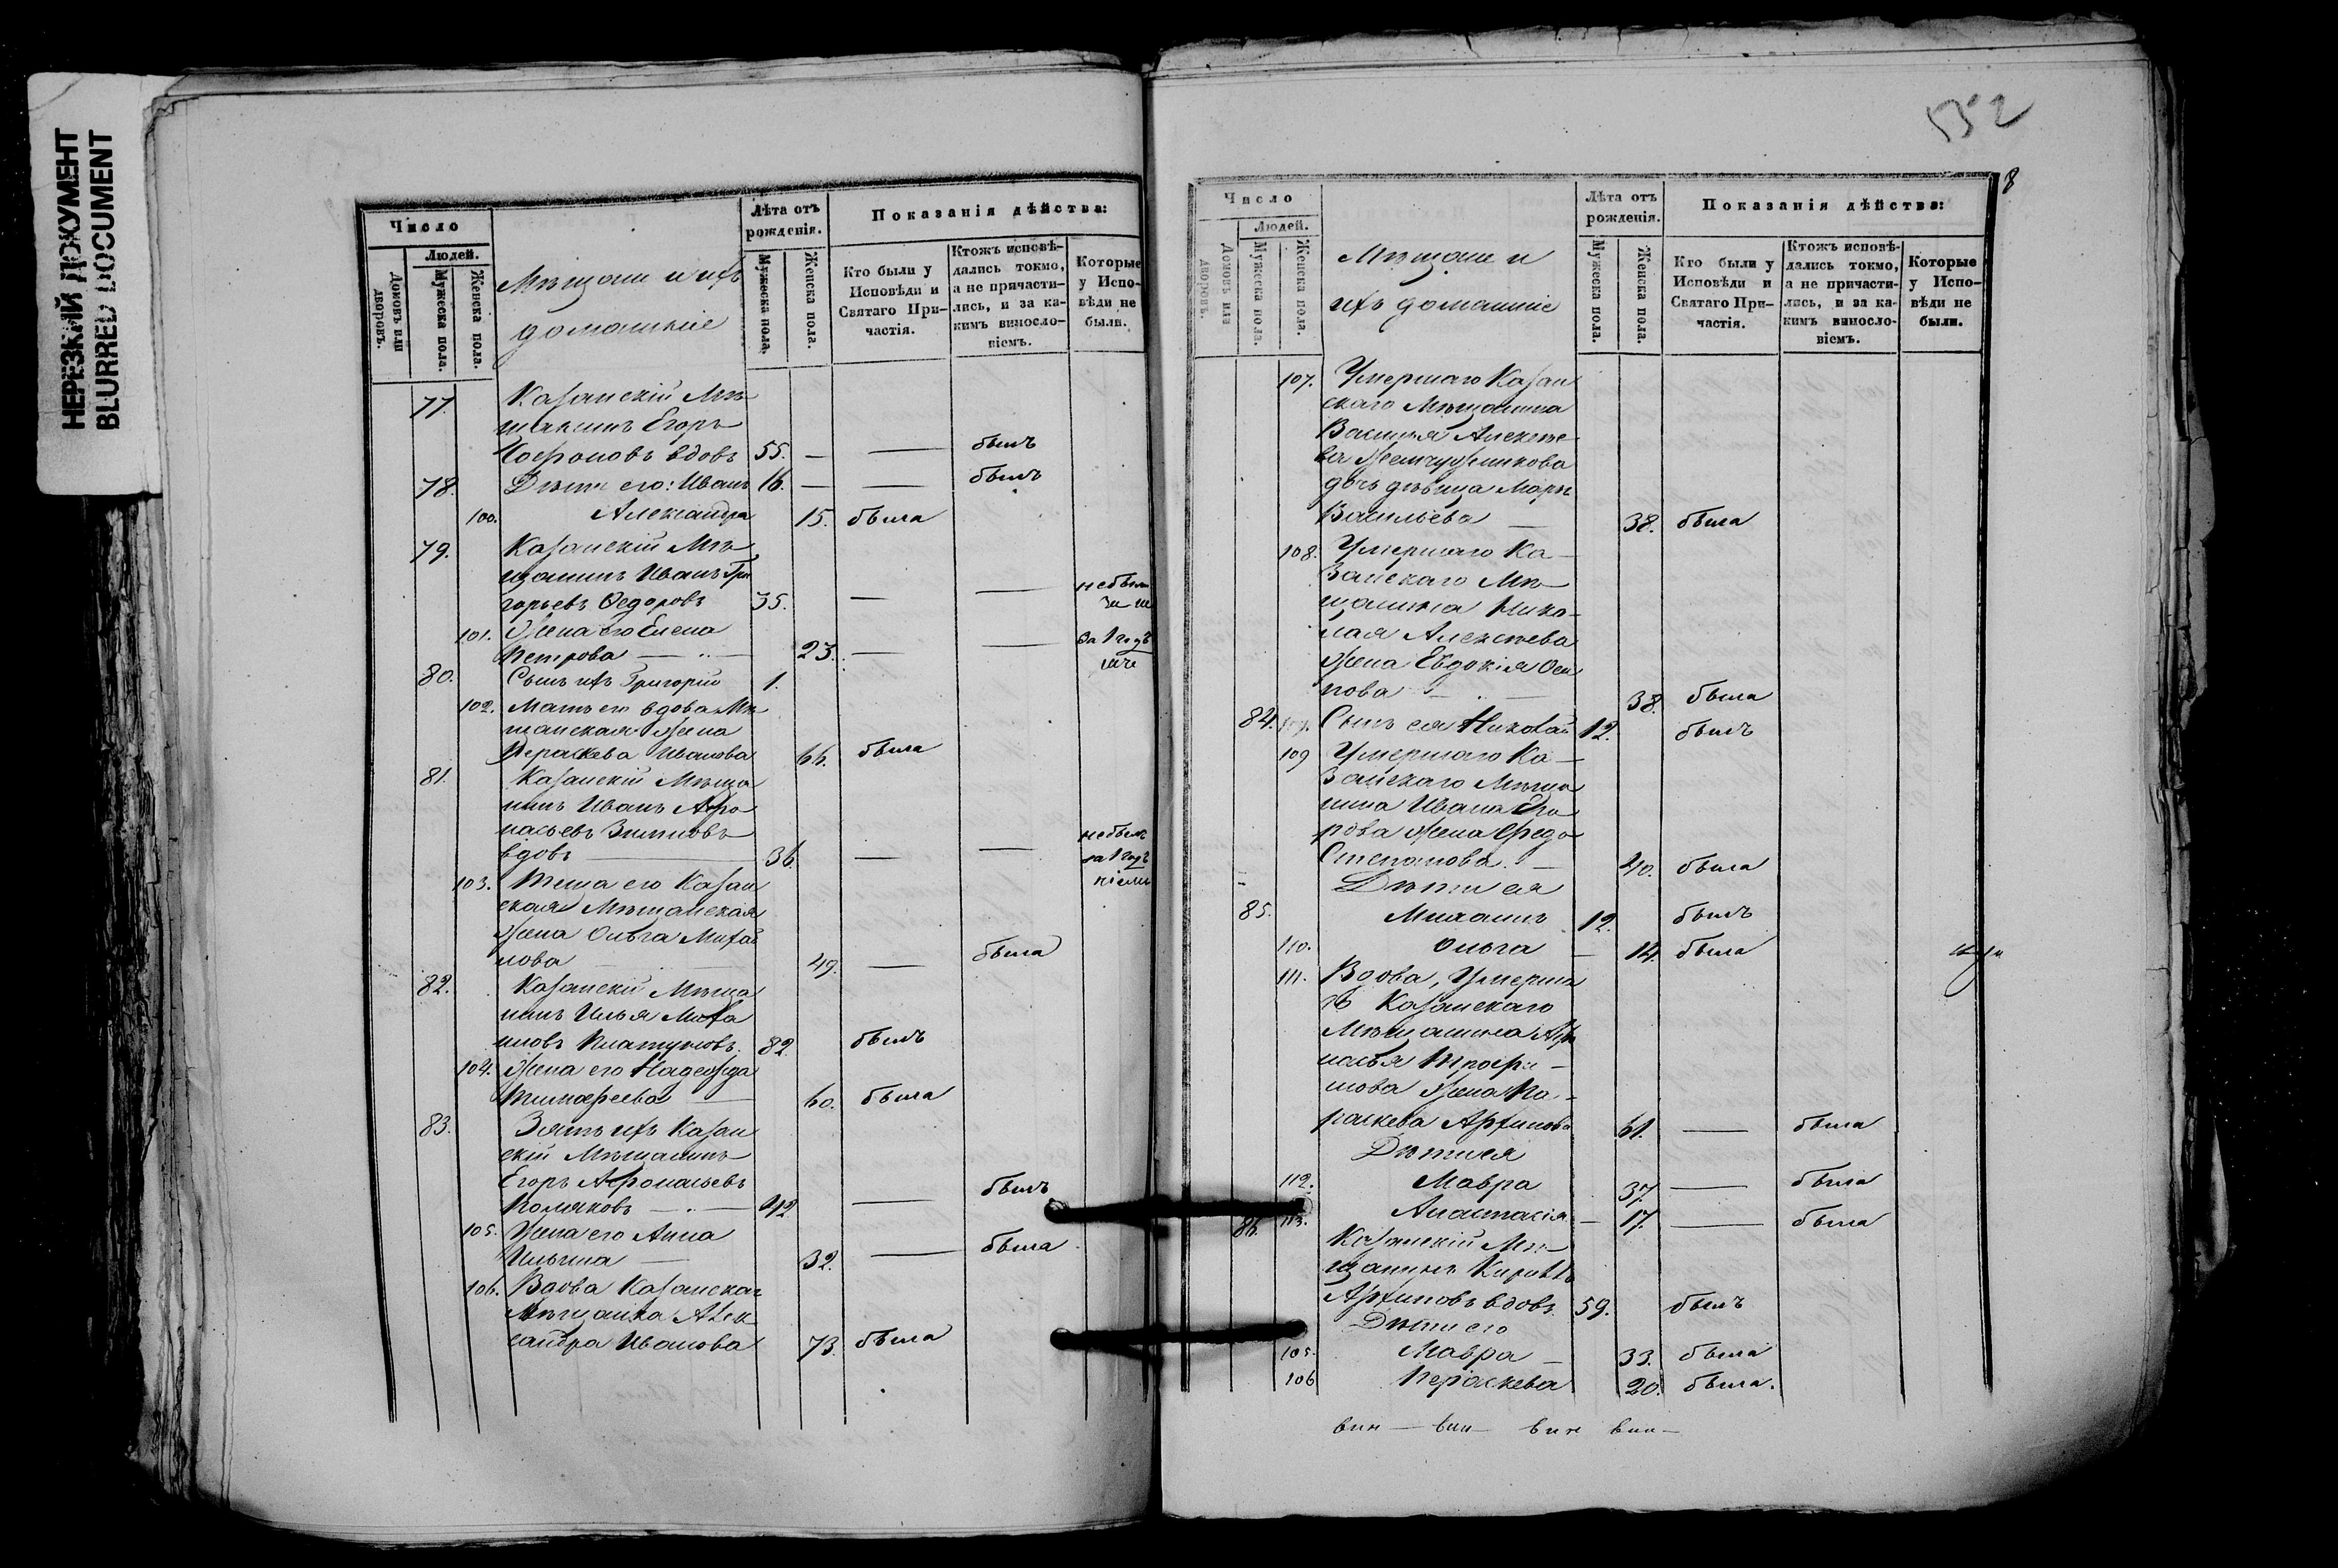 НЕРЕЗКИЙ ДОКУМЕНТ
BLURRED DOCUMENT
Число
Людей.
Домовъ или дворовъ.
Мужеска пола.
Женска пола.
Мѣщане и ихъ
домашніе
Лѣта отъ рожденія.
Мужеска пола.
Женска пола.
Показанія дѣйства:
Кто были у Исповѣди и Святаго Причастія.
Ктожъ исповѣдались токмо, а не причастились, и за какимъ винословіемъ.
Которые у Исповѣди не были.
77. Казанскій Мѣ-
щанинъ Егоръ
Софоновъ вдовъ 55. — — былъ
78. Дѣти его: Иванъ 16. — — былъ
100. Александра 15. была
79. Казанскій Мѣ-
щанинъ Иванъ Гри
горьевъ Ѳедоровъ 35. — —
101. Жена его Елена
Петрова — 23. — — за 1 годъ
80. Сынъ ихъ Григорій 1.
102. Мать его вдова Мѣ
щанская жена
Параскева Иванова 66. была
81. Казанскій Мѣща
нинъ Иванъ Афо
насьевъ Зиминовъ
вдовъ — 36. — — за 1 годъ
103. Теща его Казан
ская Мѣщанская
жена Ольга Михай
лова 49. — была
82. Казанскій Мѣща
нинъ Илья Миха
иловъ Платуновъ 82. былъ
104. Жена его Надежда
Тимофеева — 60. была
83. Зять ихъ Казан
скій Мѣщанинъ
Егоръ Афонасьевъ
Поляковъ — 42 — былъ
105. Жена его Анна
Ильина — 32. — была
106. Вдова Казанская
Мѣщанка Алек
сандра Иванова 73. была
552
8
Число
Людей.
Домовъ или дворовъ.
Мужеска пола.
Женска пола.
Мѣщане и
ихъ домашніе
Лѣта отъ рожденія.
Мужеска пола.
Женска пола.
Показанія дѣйства:
Кто были у Исповѣди и Святаго Причастія.
Ктожъ исповѣдались токмо, а не причастились, и за какимъ винословіемъ.
Которые у Исповѣди не были.
107. Умершаго Казан
скаго Мѣщанина
Василья Алексѣе
ва Жемчужникова
дочь дѣвица Марья
Васильева — 38. была
108. Умершаго Ка-
занскаго Мѣ-
щанина Нико-
лая Алексѣева
жена Евдокія Оси
пова — 38. была
84. Сынъ ея Николай 12. былъ
109 Умершаго Ка-
занскаго Мѣща
нина Ивана Его
рова жена Ѳедо
Степанова. — 40. была
Дѣти ея
85. Михаилъ 12. былъ
110. Ольга — 14. была
111. Вдова, Умерша
го Казанскаго
Мѣщанина Афо
насья Трофи-
мова жена Па-
раскева Архипова 61. — была
Дѣти ея
112. Мавра 37. — была
113. Анастасія — 17. — была
86. Казанскій Мѣ-
щанинъ Кириллъ
Архиповъ вдовъ 59. былъ
Дѣти его
105. Мавра — 33. была
106 Параскева 20. была.